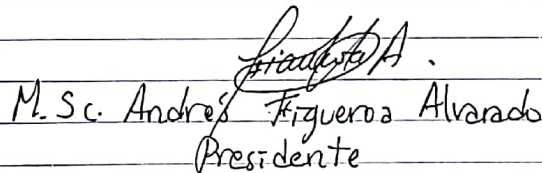 M. Sc. Andrés Figueroa Alvarado
Presidente